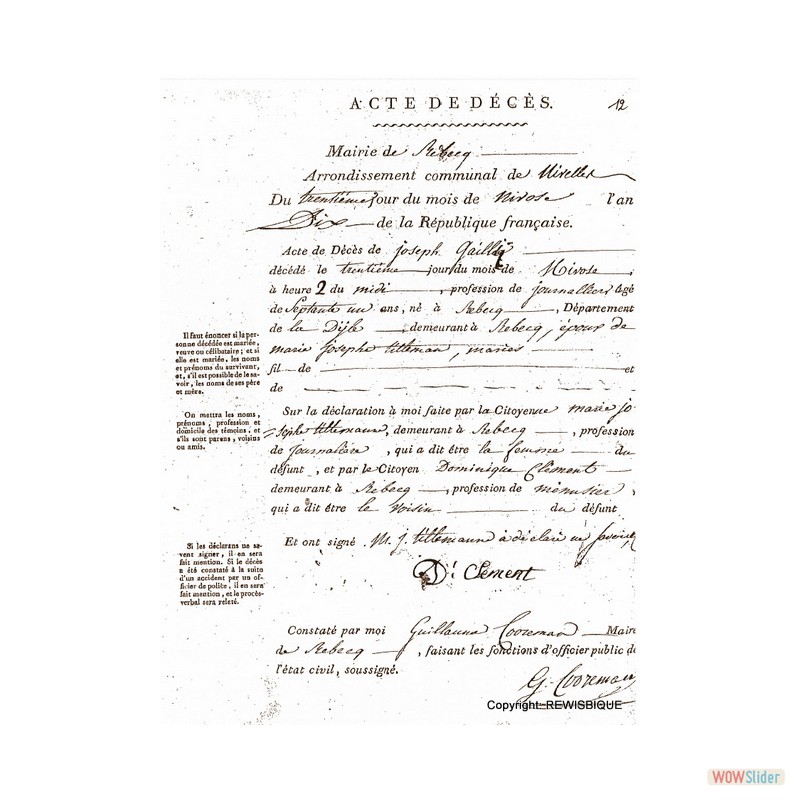 ACTE DE DÉCÈS. 12
Mairie de Rebecq
Arrondissement communal de Nivelles
Du trentième jour du mois de Nivose l'an
Dix de la République française.
Acte de Décès de joseph Gailly
décédé le trentième jour du mois de Nivose,
à heure 2 du midi, profession de journallier âgé
de Septante un ans, né à Rebecq, Département
de la Dijle, demeurant à Rebecq, époux de
marie josephe tilleman, mariés
fil de et
de
Il faut énoncer si la per-
sonne décédée est mariée,
veuve ou célibataire; et si
elle est mariée, les noms
et prénoms du survivant,
et, s'il est possible de le sa-
voir, les noms de ses père
et mère.
Sur la déclaration à moi faite par la Citoyenne marie jo
=sephe tillemann, demeurant à Rebecq, profession
de journalière, qui a dit être la femme du
défunt, et par le Citoyen Dominique Clement
demeurant à Rebecq, profession de menusier,
qui a dit être le voisin du défunt
On mettra les noms,
prénoms, profession et
domicile des témoins, et
s'ils sont parens, voisins
ou amis.
Et ont signé M. J. tillemann à déclaré ne
D: Clement
Si les déclarans ne sa-
vent signer, il en sera
fait mention. Si le décès
a été constaté à la suite
d'un accident par un of-
ficier de police, il en sera
fait mention, et le procès-
verbal sera relaté.
Constaté par moi Guillaume Cooreman Maire
de Rebecq, faisant les fonctions d'officier public de
l'état civil, soussigné.
G. Cooreman
Copyright:-REWISBIQUE
WOWSlider